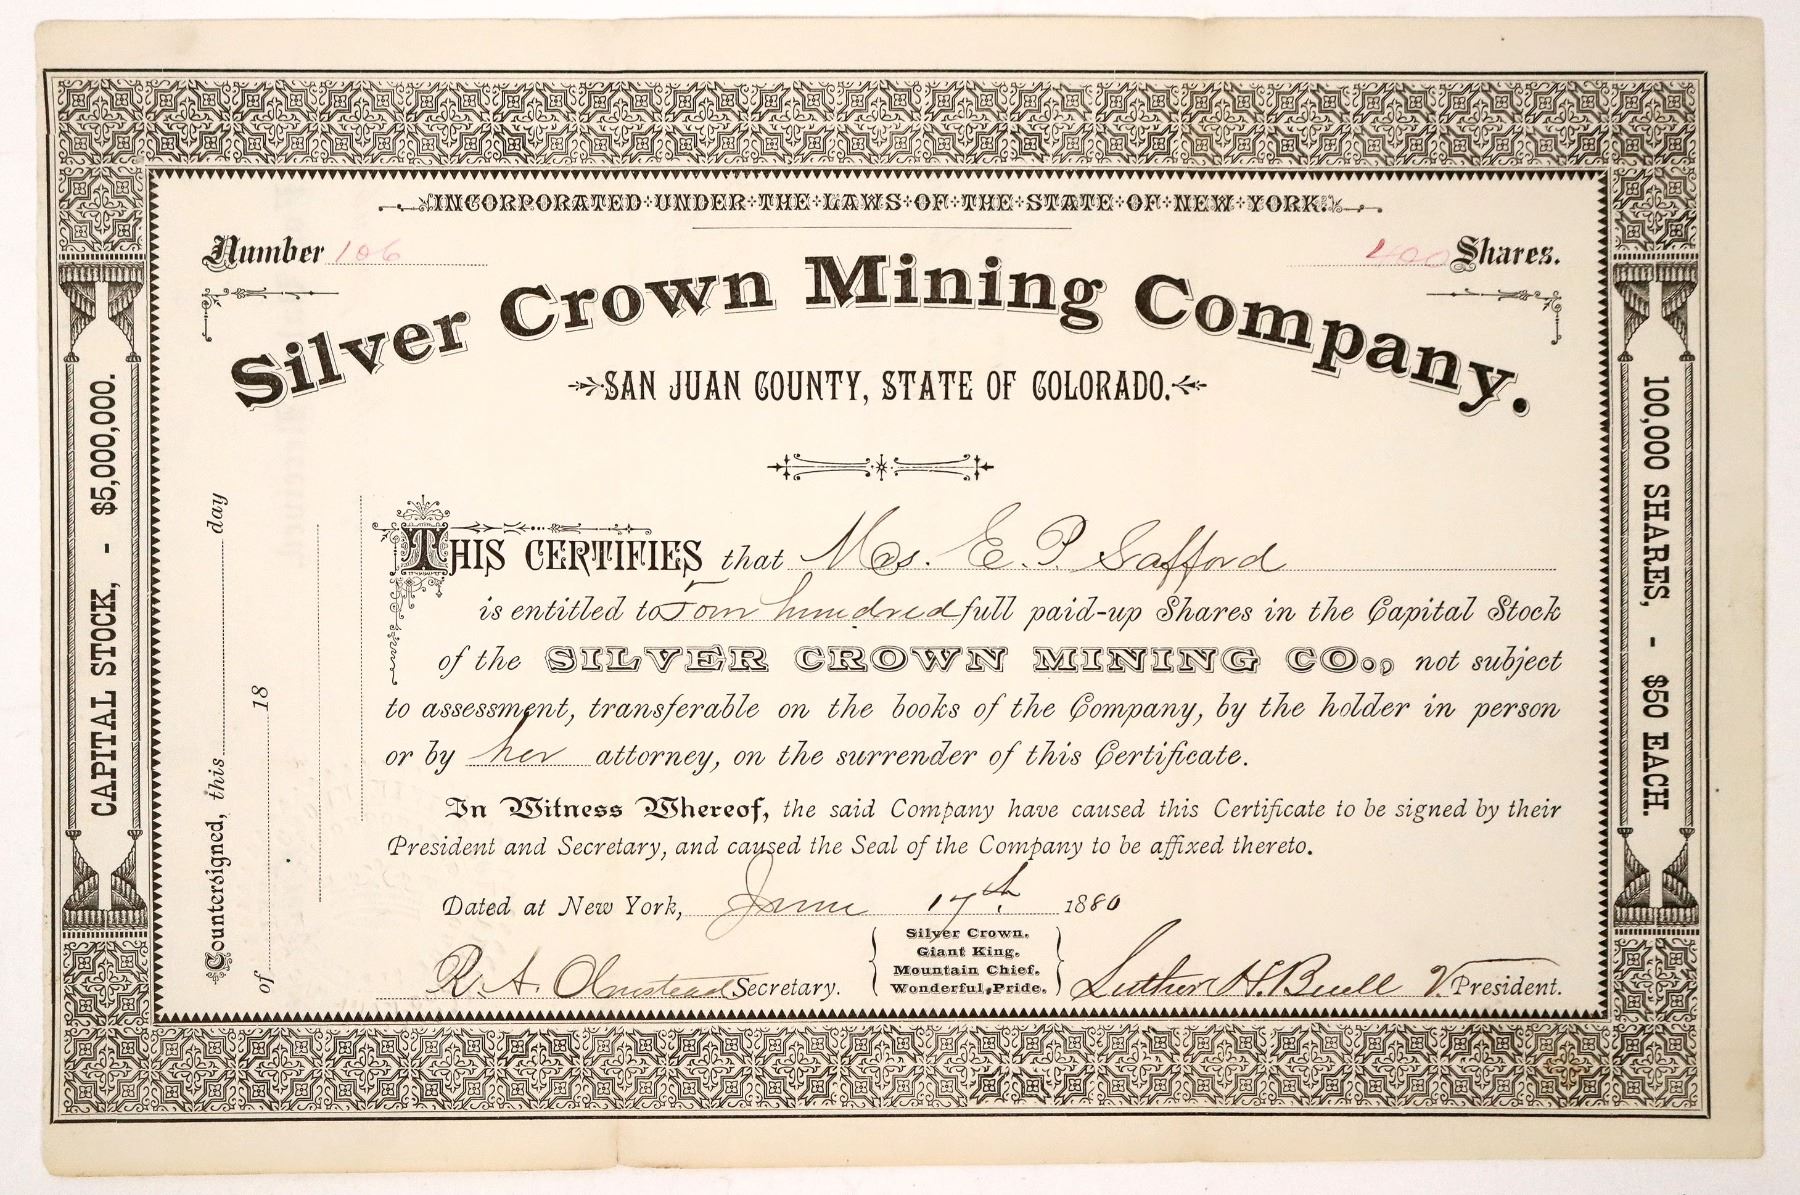 INCORPORATED UNDER THE LAWS OF THE STATE OF NEW YORK.
Number 106
400 Shares.
Silver Crown Mining Company.
SAN JUAN COUNTY, STATE OF COLORADO.
THIS CERTIFIES that Mrs. E. P. Safford
is entitled to Four hundred full paid-up Shares in the Capital Stock
of the SILVER CROWN MINING CO., not subject
to assessment, transferable on the books of the Company, by the holder in person
or by her attorney, on the surrender of this Certificate.
In Witness Whereof, the said Company have caused this Certificate to be signed by their
President and Secretary, and caused the Seal of the Company to be affixed thereto.
Dated at New York, June 17th. 1880
R. A. Olmstead Secretary.
Silver Crown.
Giant King.
Mountain Chief.
Wonderful, Pride.
Luther H. Buell V. President.
Countersigned, this day
of 18
CAPITAL STOCK, - $5,000,000.
100,000 SHARES, - $50 EACH.